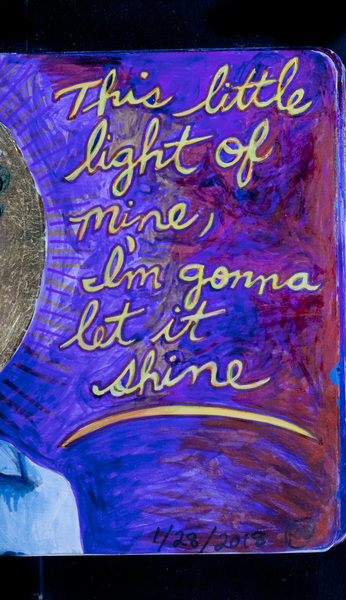 This little
light of
mine,
I'm gonna
let it
shine
1/28/2018